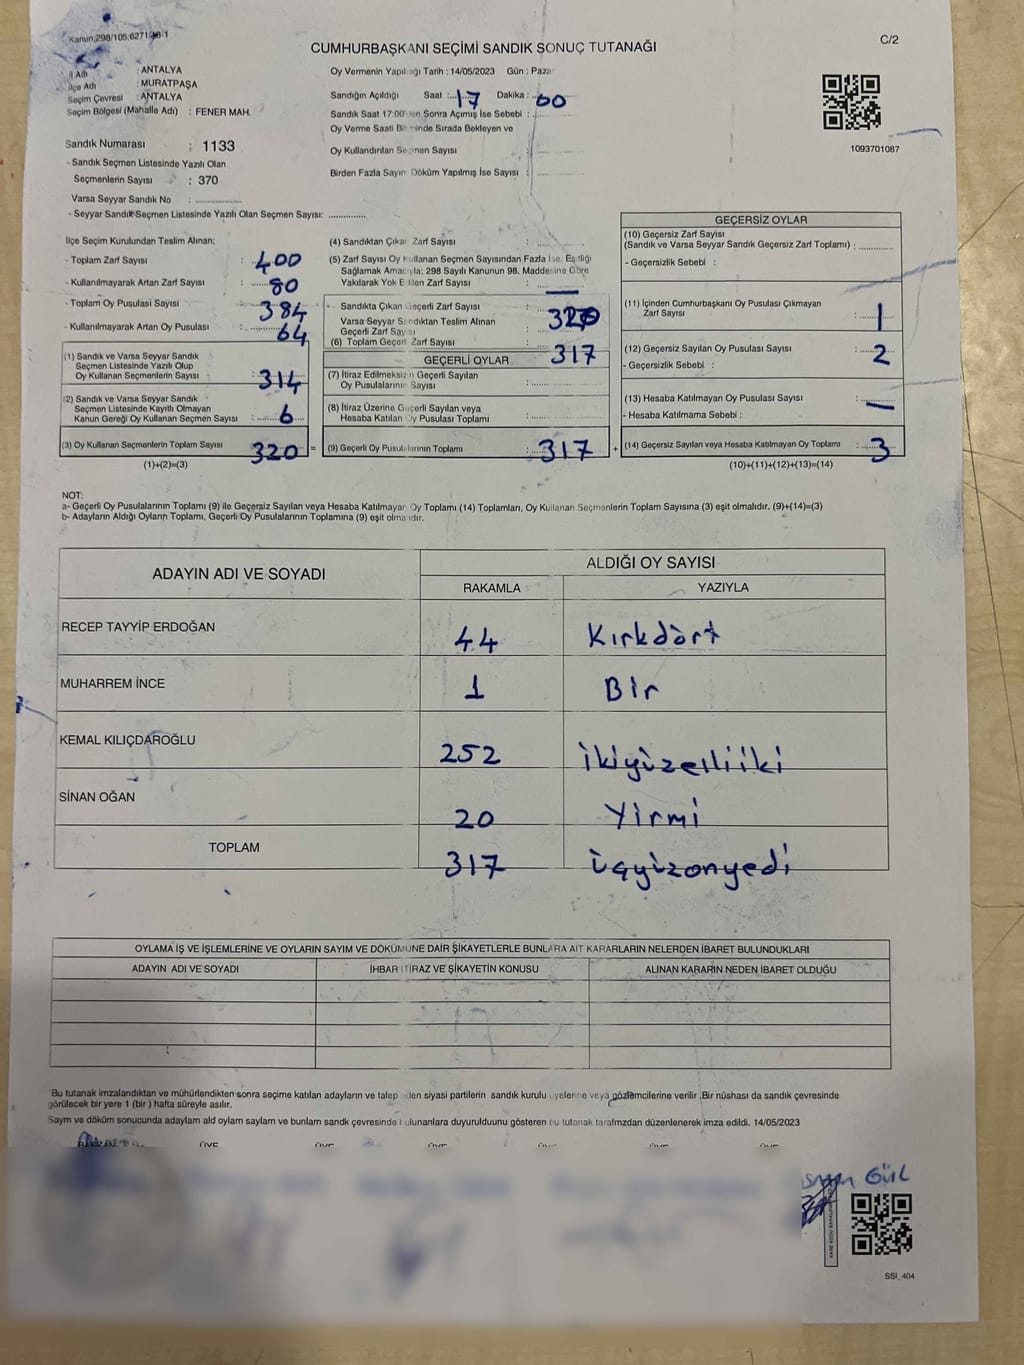 Kanun:298/105;6271/
CUMHURBAŞKANI SEÇİMİ SANDIK SONUÇ TUTANAĞI
C/2
İl Adı : ANTALYA
İlçe Adı : MURATPAŞA
Seçim Çevresi : ANTALYA
Seçim Bölgesi (Mahalle Adı) : FENER MAH.
Sandık Numarası : 1133
- Sandık Seçmen Listesinde Yazılı Olan
Seçmenlerin Sayısı : 370
Varsa Seyyar Sandık No : ................
- Seyyar Sandık Seçmen Listesinde Yazılı Olan Seçmen Sayısı: .............
Oy Vermenin Yapıldığı Tarih : 14/05/2023 Gün : Pazar
Sandığın Açıldığı Saat : 17 Dakika : 00
Sandık Saat 17:00'den Sonra Açımış İse Sebebi :
Oy Verme Saati Bitiminde Sırada Bekleyen ve
Oy Kullandırılan Seçmen Sayısı :
Birden Fazla Sayım Döküm Yapılmış İse Sayısı :
1093701087
İlçe Seçim Kurulundan Teslim Alınan;
- Toplam Zarf Sayısı : 400
- Kullanılmayarak Artan Zarf Sayısı : 80
- Toplam Oy Pusulası Sayısı : 384
- Kullanılmayarak Artan Oy Pusulası : 64
(1) Sandık ve Varsa Seyyar Sandık
Seçmen Listesinde Yazılı Olup
Oy Kullanan Seçmenlerin Sayısı : 314
(2) Sandık ve Varsa Seyyar Sandık
Seçmen Listesinde Kayıtlı Olmayan
Kanun Gereği Oy Kullanan Seçmen Sayısı : 6
(3) Oy Kullanan Seçmenlerin Toplam Sayısı 320 =
(1)+(2)=(3)
(4) Sandıktan Çıkan Zarf Sayısı :
(5) Zarf Sayısı Oy Kullanan Seçmen Sayısından Fazla İse, Eşitliği
Sağlamak Amacıyla; 298 Sayılı Kanunun 98. Maddesine Göre
Yakılarak Yok Edilen Zarf Sayısı : —
Sandıkta Çıkan Geçerli Zarf Sayısı : 320
Varsa Seyyar Sandıktan Teslim Alınan
Geçerli Zarf Sayısı :
(6) Toplam Geçerli Zarf Sayısı : 317
GEÇERLİ OYLAR
(7) İtiraz Edilmeksizin Geçerli Sayılan
Oy Pusulalarının Sayısı :
(8) İtiraz Üzerine Geçerli Sayılan veya
Hesaba Katılan Oy Pusulası Toplamı :
(9) Geçerli Oy Pusulalarının Toplamı : 317 +
GEÇERSİZ OYLAR
(10) Geçersiz Zarf Sayısı
(Sandık ve Varsa Seyyar Sandık Geçersiz Zarf Toplamı) : ............
- Geçersizlik Sebebi :
(11) İçinden Cumhurbaşkanı Oy Pusulası Çıkmayan
Zarf Sayısı : 1
(12) Geçersiz Sayılan Oy Pusulası Sayısı : 2
- Geçersizlik Sebebi :
(13) Hesaba Katılmayan Oy Pusulası Sayısı : —
- Hesaba Katılmama Sebebi :
(14) Geçersiz Sayılan veya Hesaba Katılmayan Oy Toplamı : 3
(10)+(11)+(12)+(13)=(14)
NOT:
a- Geçerli Oy Pusulalarının Toplamı (9) ile Geçersiz Sayılan veya Hesaba Katılmayan Oy Toplamı (14) Toplamları, Oy Kullanan Seçmenlerin Toplam Sayısına (3) eşit olmalıdır. (9)+(14)=(3)
b- Adayların Aldığı Oyların Toplamı, Geçerli Oy Pusulalarının Toplamına (9) eşit olmalıdır.
ADAYIN ADI VE SOYADI
ALDIĞI OY SAYISI
RAKAMLA YAZIYLA
RECEP TAYYİP ERDOĞAN 44 Kırkdört
MUHARREM İNCE 1 Bir
KEMAL KILIÇDAROĞLU 252 ikiyüzelliiki
SİNAN OĞAN 20 Yirmi
TOPLAM 317 üçyüzonyedi
OYLAMA İŞ VE İŞLEMLERİNE VE OYLARIN SAYIM VE DÖKÜMÜNE DAİR ŞİKAYETLERLE BUNLARA AİT KARARLARIN NELERDEN İBARET BULUNDUKLARI
ADAYIN ADI VE SOYADI İHBAR İTİRAZ VE ŞİKAYETİN KONUSU ALINAN KARARIN NEDEN İBARET OLDUĞU
*Bu tutanak imzalandıktan ve mühürlendikten sonra seçime katılan adayların ve talep eden siyasi partilerin sandık kurulu üyelerine veya gözlemcilerine verilir .Bir nüshası da sandık çevresinde
görülecek bir yere 1 (bir ) hafta süreyle asılır.
Sayım ve döküm sonucunda adaylam ald oylam saylam ve bunlam sandk çevresinde bulunanlara duyurulduunu gösteren bu tutanak tarafmzdan düzenlenerek imza edildi. 14/05/2023
ÜYE
Gül
SSI_404